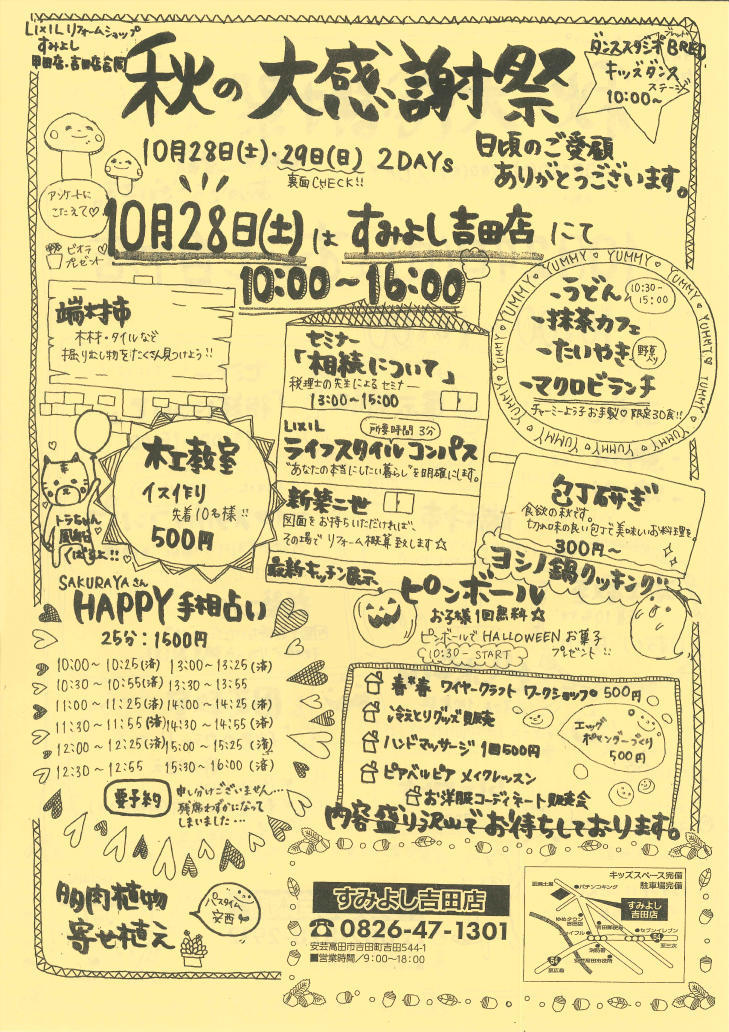 LIXIL リフォームショップ
すみよし
甲田店・吉田店合同
秋の大感謝祭
ダンススタジオBRED
キッズダンス
ステージ
10:00～
10月28日(土)・29日(日) 2DAYs
裏面CHECK!!
日頃のご愛顧
ありがとうございます。
アンケートに
こたえて♡
ビオラ
プレゼント
10月28日(土)は すみよし吉田店 にて
10:00～16:00
端材市
木材・タイルなど
掘り出し物をたくさん見つけよう!!
セミナー
「相続について」
税理士の先生によるセミナー
13:00～15:00
LIXIL
所要時間 3分
ライフスタイルコンパス
"あなたの本当にしたい暮らし"を明確にします。
図面をお持ちいただければ、
その場でリフォーム概算致します☆
最新キッチン展示
YUMMY♡YUMMY♡YUMMY♡YUMMY
-うどん
10:30-
15:00
-抹茶カフェ
-たいやき
-マクロビランチ
チャーミーよう子お手製♡限定30食!!
木工教室
イス作り
先着10名様!!
500円
トラちゃん
風船
くばるよ!!
包丁研ぎ
食欲の秋です。
切れ味の良い包丁で美味しいお料理を。
300円～
ヨシノ鍋クッキング
ピンボール
お子様1回無料☆
ピンボールでHALLOWEENお菓子
プレゼント!!
10:30- START
SAKURAYAさん
HAPPY手相占い
25分:1500円
10:00～10:25(済) 13:00～13:25(済)
10:30～10:55(済) 13:30～13:55
11:00～11:25(済) 14:00～14:25(済)
11:30～11:55(済) 14:30～14:55(済)
12:00～12:25(済) 15:00～15:25(済)
12:30～12:55 15:30～16:00(済)
要予約
申し分けございません…
残席わずかになって
しまいました…
春*春 ワイヤークラフト ワークショップ。500円
冷えとりグッズ販売
ハンドマッサージ 1回500円
ピアベルピア メイクレッスン
お洋服コーディネート販売会
エッグ
ポマンダーづくり
500円
内容盛り沢山でお待ちしております。
多肉植物
寄せ植え
パスタイム
安西
すみよし吉田店
☎0826-47-1301
安芸高田市吉田町吉田544-1
■営業時間／9:00～18:00
キッズスペース完備
駐車場完備
パチンコキング
すみよし
吉田店
ゆめタウン
吉田店
吉田郵便局
ジョイフル
消防署
セブンイレブン
安芸高田市役所
54
至三次
54
至広島